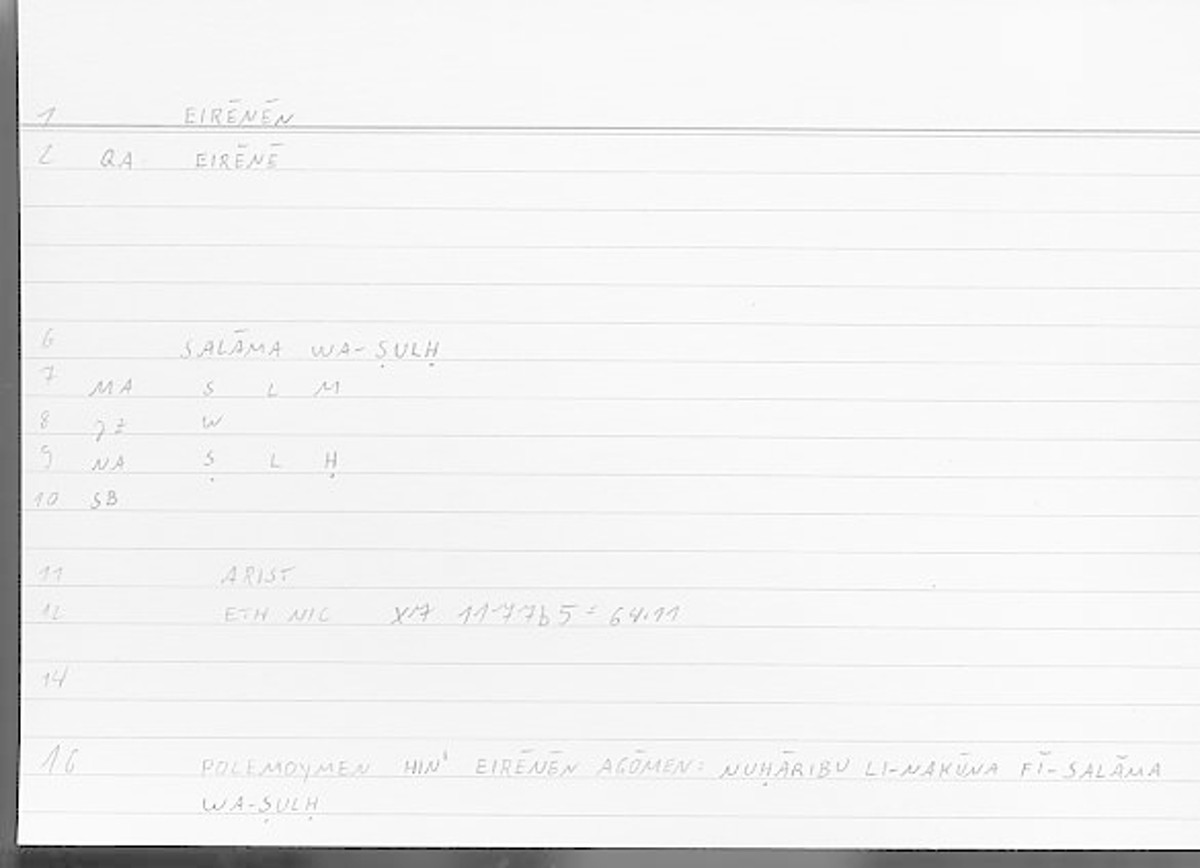 1 EIRĒNĒN
2 QA EIRĒNĒ
6 SALĀMA WA-ṢULḤ
7 MA S L M
8 JZ W
9 NA Ṣ L Ḥ
10 SB
11 ARIST
12 ETH NIC X7 1177b5 = 64.11
14
16 POLEMOYMEN HIN' EIRĒNĒN AGŌMEN: NUḤĀRIBU LI-NAKŪNA FĪ-SALĀMA
WA-ṢULḤ